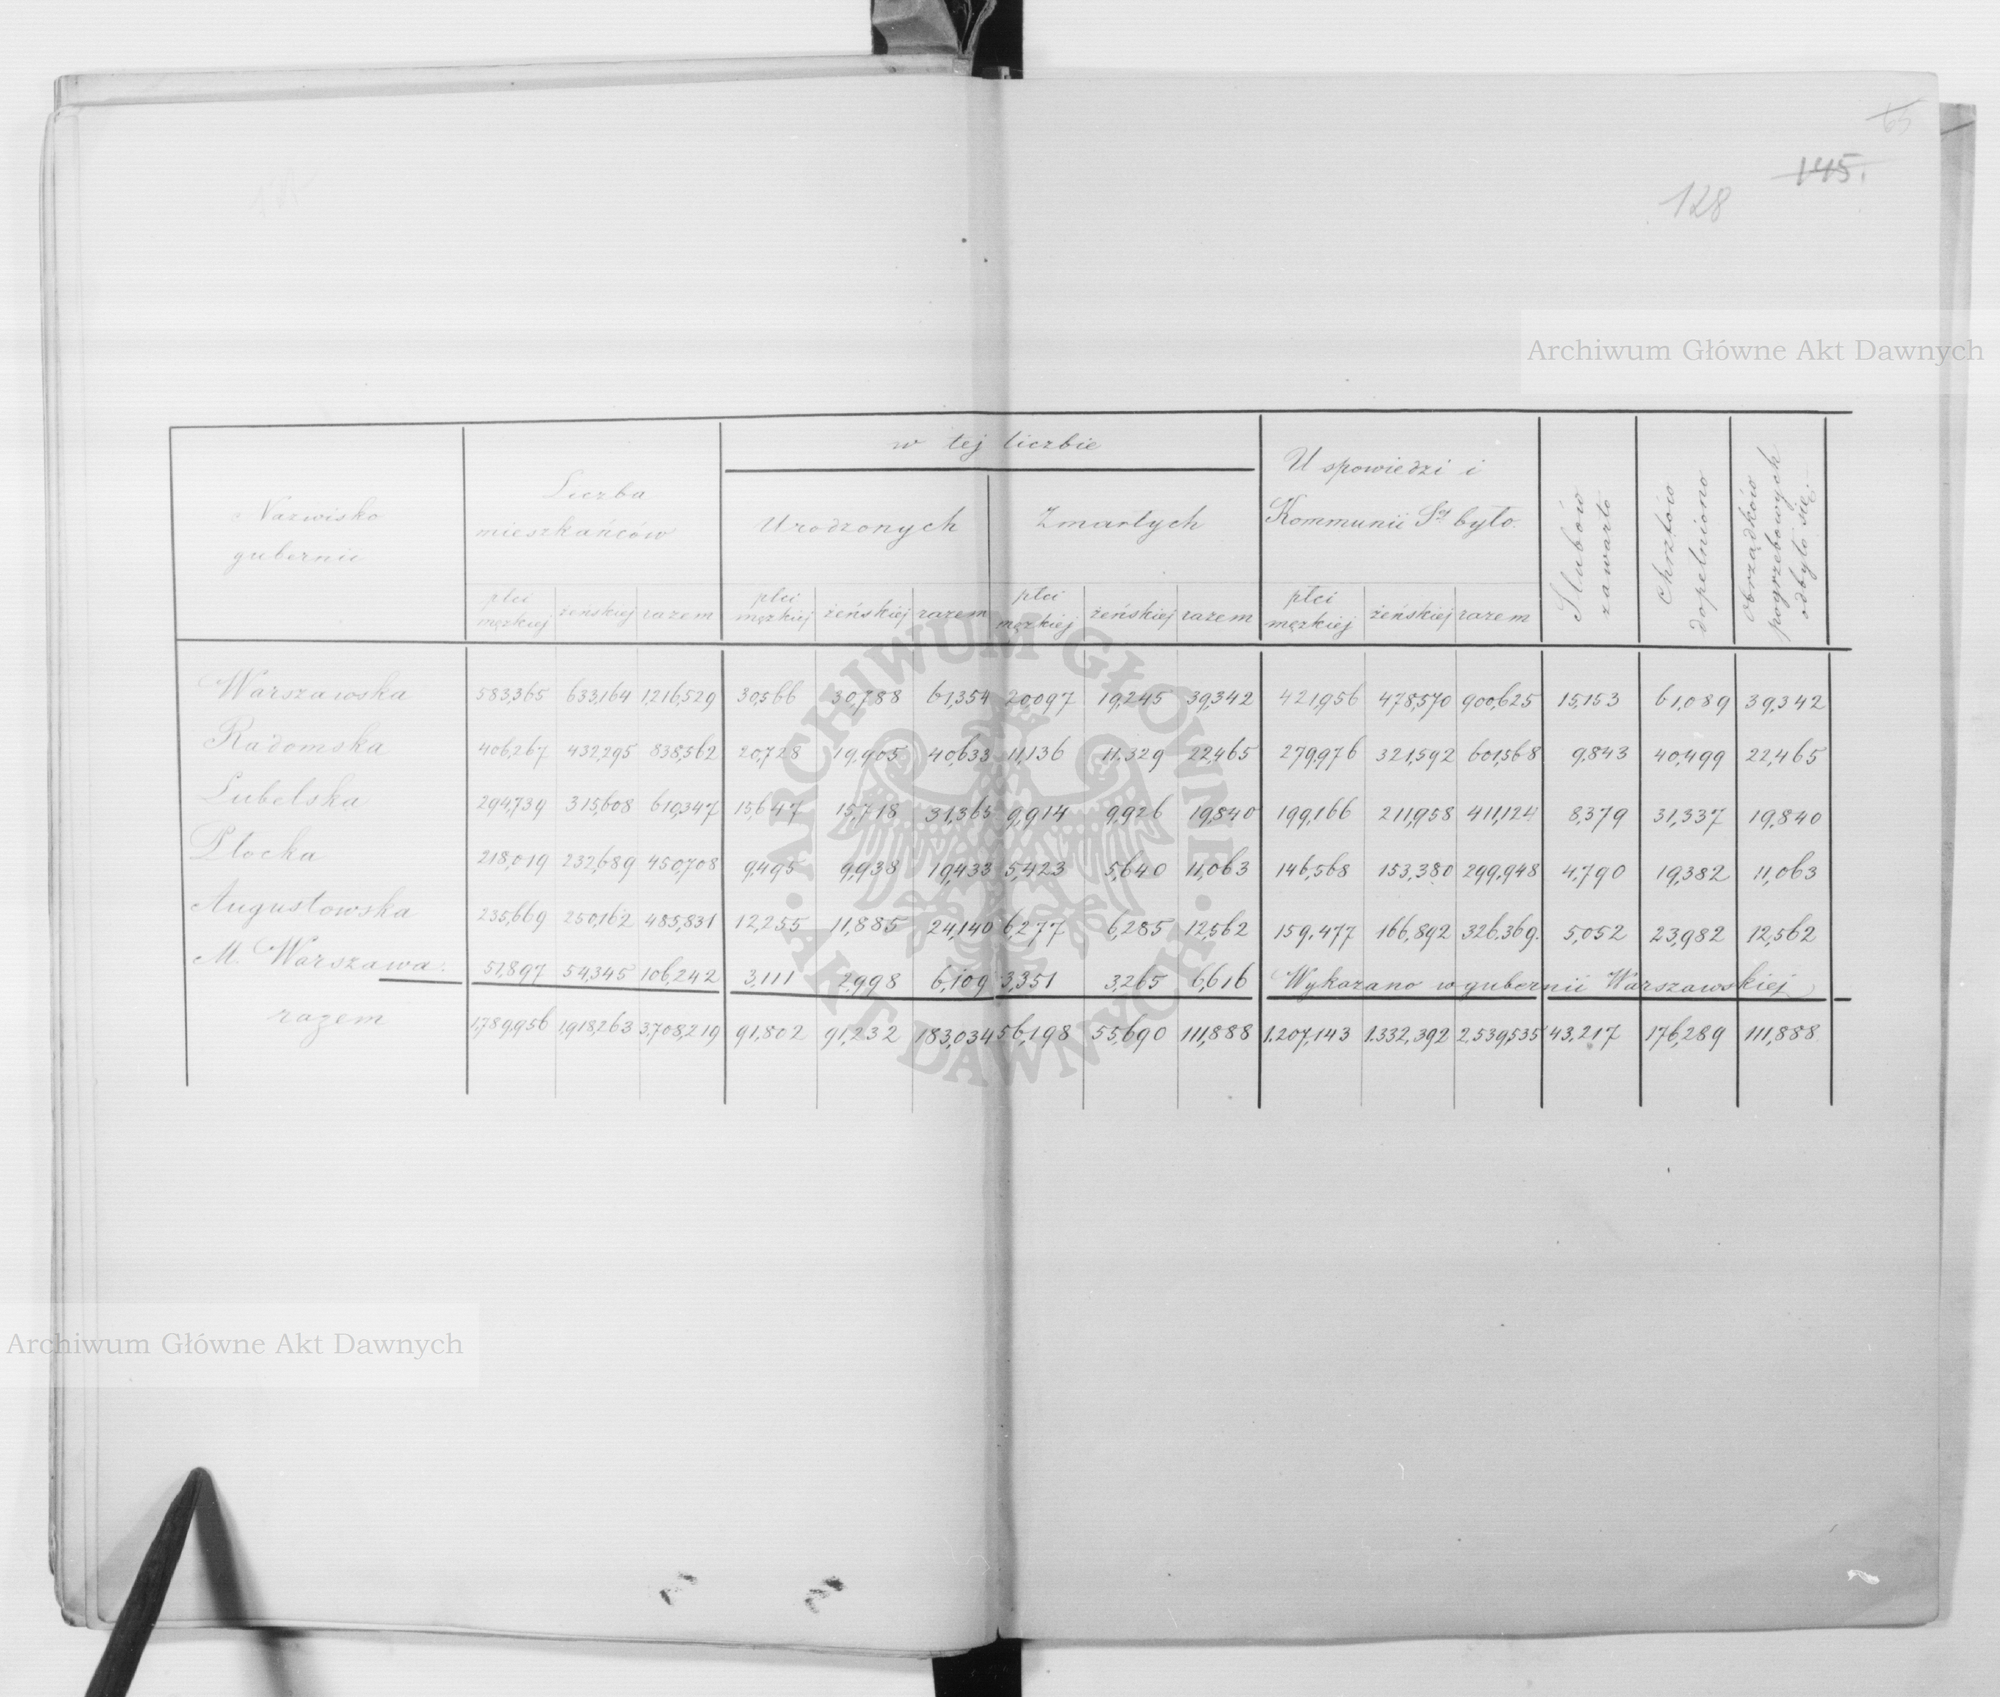 65
145.
128
Archiwum Główne Akt Dawnych
w tej liczbie
Nazwisko gubernii
Liczba mieszkańców
Urodzonych
Zmarłych
U spowiedzi i Kommunii Sej było.
Slubów zawarto
Chrztów dopełniono
Obrządków pogrzebowych odbyło się.
płci męzkiej żeńskiej razem płci męzkiej żeńskiej razem płci męzkiej żeńskiej razem płci męzkiej żeńskiej razem
Warszawska 583,365 633,164 1,216,529 30,566 30,788 61,354 20,097 19,245 39,342 421,956 478,570 900,625 15,153 61,089 39,342
Radomska 406,267 432,295 838,562 20,728 19,905 40,633 11,136 11,329 22,465 279,976 321,592 601,568 9,843 40,499 22,465
Lubelska 294,739 315,608 610,347 15,647 15,718 31,365 9,914 9,926 19,840 199,166 211,958 411,124 8,379 31,337 19,840
Płocka 218,019 232,689 450,708 9,495 9,938 19,433 5,423 5,640 11,063 146,568 153,380 299,948 4,790 19,382 11,063
Augustowska 235,669 250,162 485,831 12,255 11,885 24,140 6,277 6,285 12,562 159,477 166,892 326,369. 5,052 23,982 12,562
M. Warszawa. 51,897 54,345 106,242 3,111 2,998 6,109 3,351 3,265 6,616 Wykazano w gubernii Warszawskiej
razem 1,789,956 1,918,263 3,708,219 91,802 91,232 183,034 56,198 55,690 111,888 1.207,143 1.332,392 2,539,535 43,217 176,289 111,888.
ARCHIWUM GŁÓWNE AKT DAWNYCH
Archiwum Główne Akt Dawnych